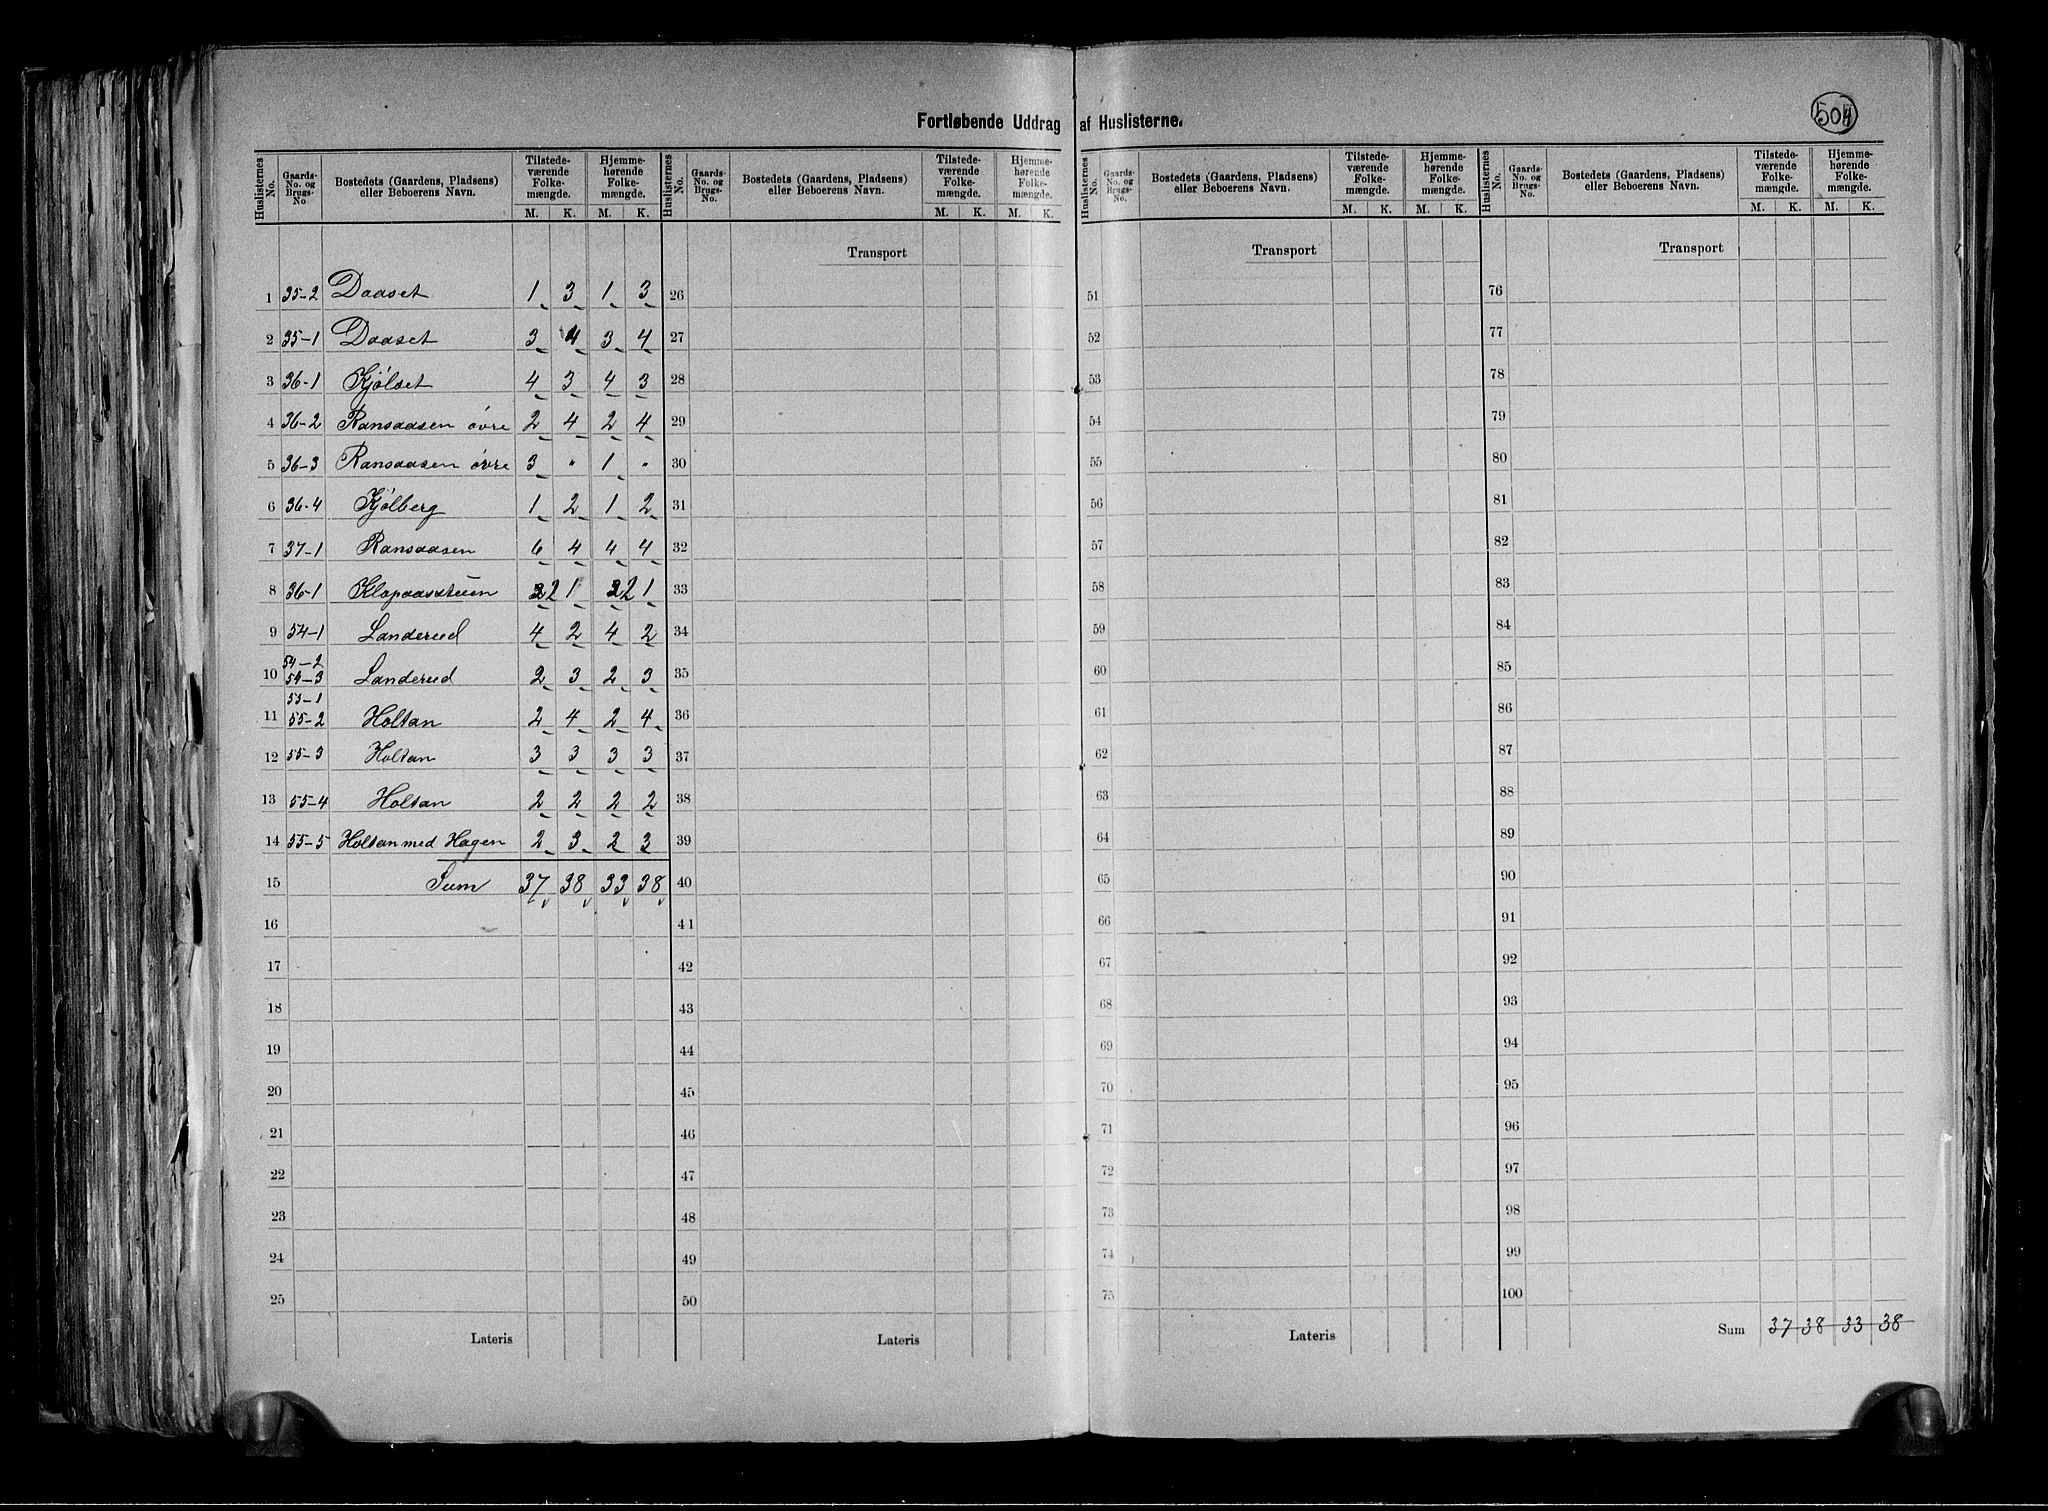 Fortløbende Uddrag af Huslisterne.
504
Huslisternes No. Gaards-No. og Brugs-No Bostedets (Gaardens, Pladsens) eller Beboerens Navn. Tilstedeværende Folkemængde. M. K. Hjemmehørende Folkemængde. M. K.
1 35-2 Daaset 1 3 1 3
2 35-1 Daaset 3 4 3 4
3 36-1 Kjølset 4 3 4 3
4 36-2 Ransaasen øvre 2 4 2 4
5 36-3 Ransaasen øvre 3 " 1 "
6 36-4 Kjølberg 1 2 1 2
7 37-1 Ransaasen 6 4 4 4
8 36-1 Klopaasstuen 2 1 2 1
9 54-1 Landerud 4 2 4 2
10 54-2 54-3 Landerud 2 3 2 3
11 55-1 55-2 Holtan 2 4 2 4
12 55-3 Holtan 3 3 3 3
13 55-4 Holtan 2 2 2 2
14 55-5 Holtan med Hagen 2 3 2 3
15 Sum 37 38 33 38
16
17
18
19
20
21
22
23
24
25
Lateris
Huslisternes No. Gaards-No. og Brugs-No. Bostedets (Gaardens, Pladsens) eller Beboerens Navn. Tilstedeværende Folkemængde. M. K. Hjemmehørende Folkemængde. M. K.
Transport
26
27
28
29
30
31
32
33
34
35
36
37
38
39
40
41
42
43
44
45
46
47
48
49
50
Lateris
Huslisternes No. Gaards-No. og Brugs-No. Bostedets (Gaardens, Pladsens) eller Beboerens Navn. Tilstedeværende Folkemængde. M. K. Hjemmehørende Folkemængde. M. K.
Transport
51
52
53
54
55
56
57
58
59
60
61
62
63
64
65
66
67
68
69
70
71
72
73
74
75
Lateris
Huslisternes No. Gaards-No. og Brugs-No. Bostedets (Gaardens, Pladsens) eller Beboerens Navn. Tilstedeværende Folkemængde. M. K. Hjemmehørende Folkemængde. M. K.
Transport
76
77
78
79
80
81
82
83
84
85
86
87
88
89
90
91
92
93
94
95
96
97
98
99
100
Sum 37 38 33 38